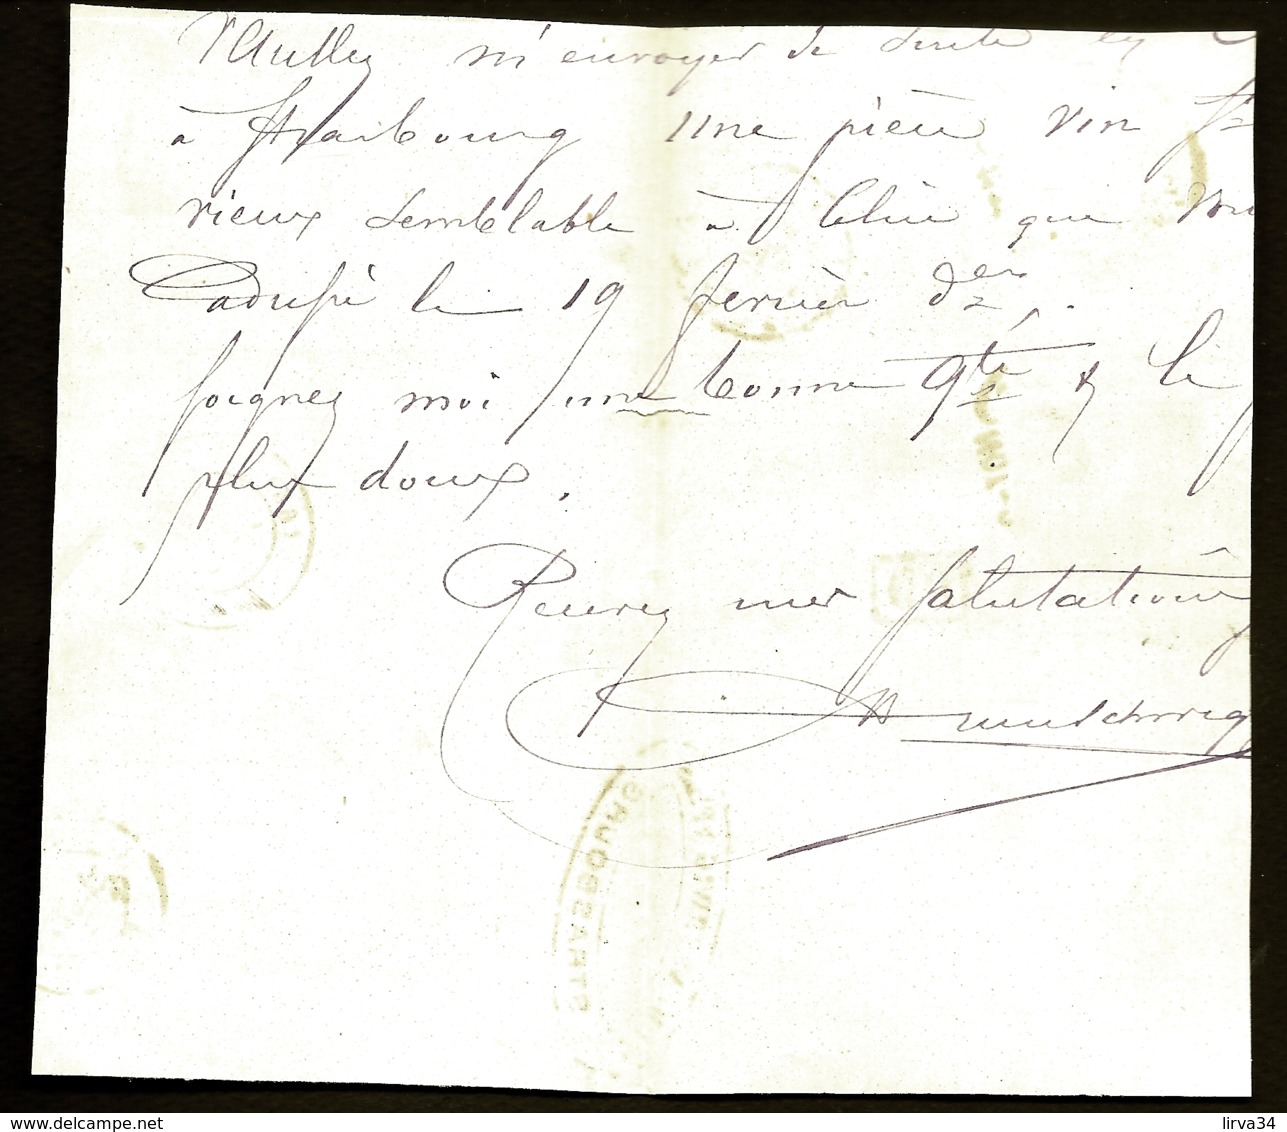 Veuillez m'envoyer de suite en
à Strasbourg une pièce vin St
vieux semblable à celui que vous
adressé le 19 fevrier der.
Soignez moi une bonne qté & le
plus doux.
Recevez mes salutations
STRASBOURG
lirva34